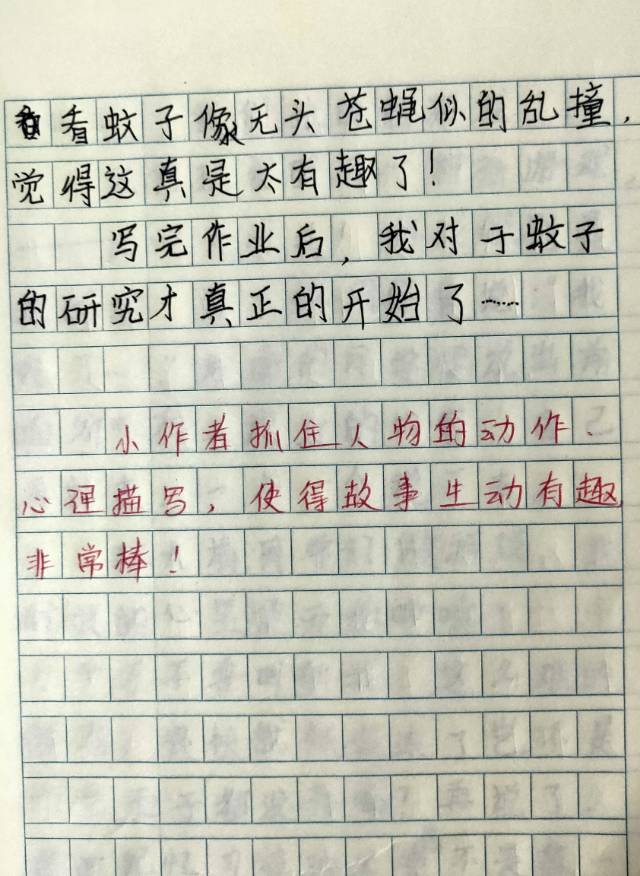 看看蚊子像无头苍蝇似的乱撞，
觉得这真是太有趣了！
写完作业后，我对于蚊子
的研究才真正的开始了……
小作者抓住人物的动作、
心理描写，使得故事生动有趣，
非常棒！